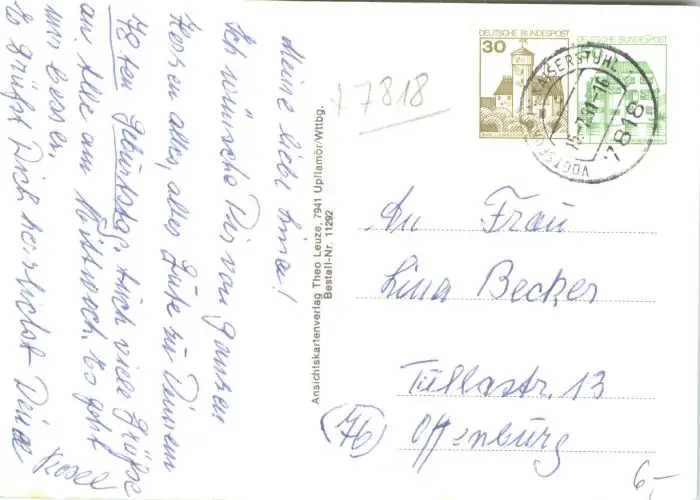 Meine liebe Lina!
Ich wünsche Dir von ganzem
Herzen alles, alles Gute zu Deinem
78ten Geburtstag. Auch viele Grüße
an Alle am Mittwoch. Es geht
mir besser.
Es grüßt Dich herzlichst Deine
Rosel
Ansichtskartenverlag Theo Leuze, 7941 Upflamör/Wttbg.
Bestell-Nr. 11292
+7818
DEUTSCHE BUNDESPOST
30
DEUTSCHE BUNDESPOST
VOGTSBURG KAISERSTUHL
7818
An Frau
Lina Becker
Tullastr. 13
(76) Offenburg
6,-